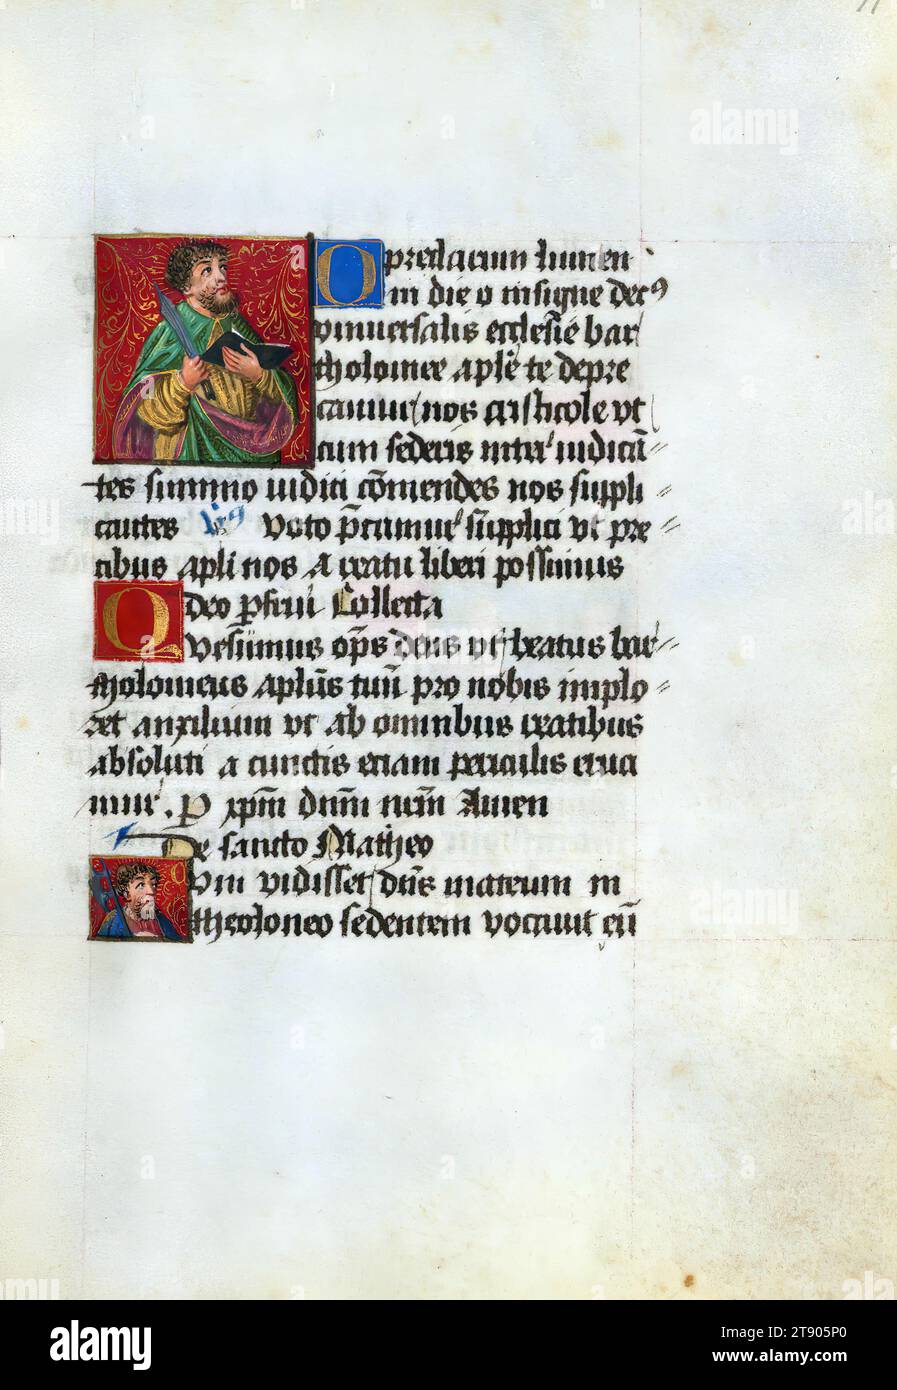 O preclarum lumen
in die o insigne decꝰ
vniuersalis ecclesie bar
tholomee aplē te depre
camur nos cristicole vt
cum sederis inter iudicā-
tes summo iudici cōmendes nos suppli
cantes Voto p̄camur supplici vt pre
cibus apli nos a reatu liberi possimus
deo p̄frui Collecta
Quesumus op̄s deus vt beatus bar
tholomeus aplūs tuū pro nobis implo
ret auxilium vt ab omnibus reatibus
absoluti a cunctis etiam periculis erua
mur. P xp̄m dn̄m nr̄m Amen
De sancto Matheo
Cum vidisset dn̄s mateum in
theoloneo sedentem vocauit eū
alamy
Image ID: 2T905P0
www.alamy.com